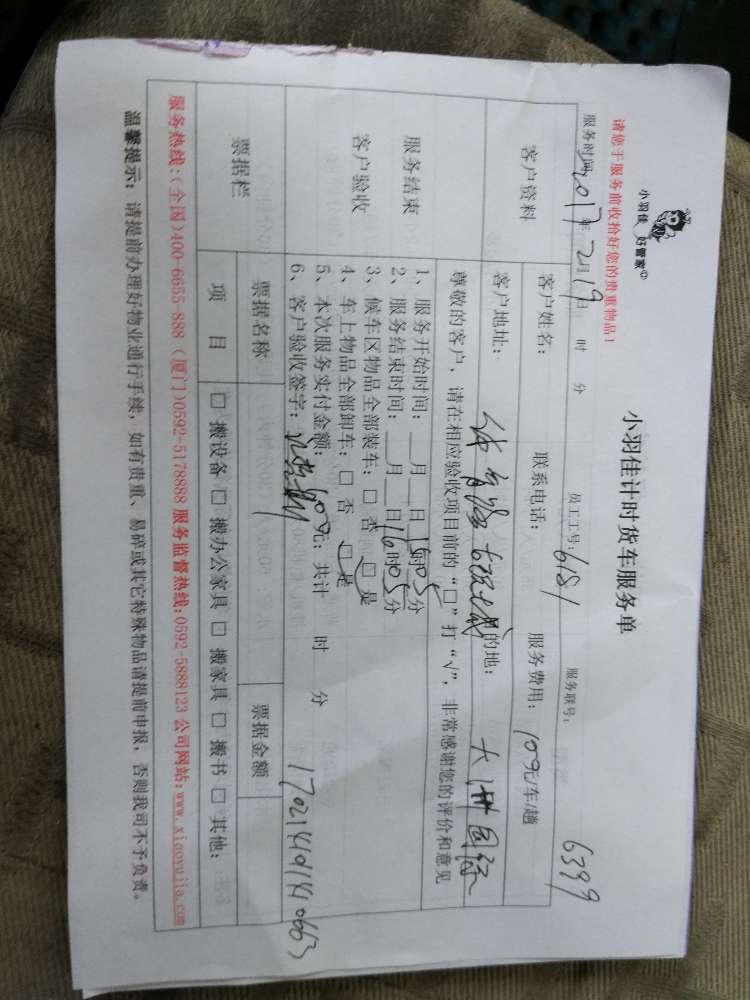 小羽佳 好管家©
小羽佳计时货车服务单
请您于服务前收拾好您的贵重物品！
员工工号：6181 服务联号：6399
服务时间：2017年2月19日 时 分
客户资料
客户姓名： 联系电话： 服务费用：109元/车/趟
客户地址： 的地：
尊敬的客户，请在相应验收项目前的“□”打“√”，非常感谢您的评价和意见
服务结束
客户验收
1、服务开始时间：__月__日15时05分
2、服务结束时间：__月__日16时05分
3、候车区物品全部装车：□ 否 □ 是
4、车上物品全部卸车：□ 否 □ 是
5、本次服务实付金额： 元；共计 时 分
6、客户验收签字：
1702141011410663
票据栏
票据名称 票据金额
项 目 □ 搬设备 □ 搬办公家具 □ 搬家具 □ 搬书 □ 其他：
服务热线：(全国)400-6655-888 (厦门)0592-5178888 服务监督热线：0592-5888123 公司网站：www.xiaoyujia.com
温馨提示：请提前办理好物业通行手续，如有贵重、易碎或其它特殊物品请提前申报，否则我司不予负责。